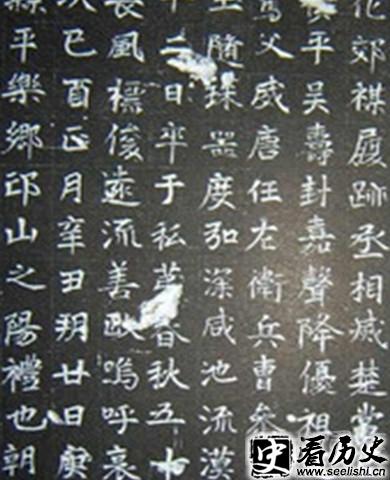 化郊禖履跡丞相威楚常
平吳壽封嘉聲降優祖
父威唐任右衛兵曹參
隨珠器度弘深咸池流漢
二日卒于私第春秋五十
風標俊遠流善歐嗚呼哀
次己酉正月辛丑朔廿日庚
平樂鄉邙山之陽禮也朝
史 看历史
www.seelishi.com